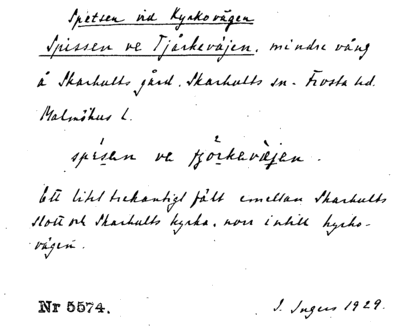 Spetsen vid Kyrkovägen
Spissen ve Tjårkevájen. mindre vång
å Skarhults gård. Skarhults sn. Frosta hd.
Malmöhus l.
spisen ve
Ett litet trekantigt fält emellan Skarhults
slott och Skarhults kyrka, norr intill kyrko-
vägen.
Nr 5574. I. Ingers 1929.